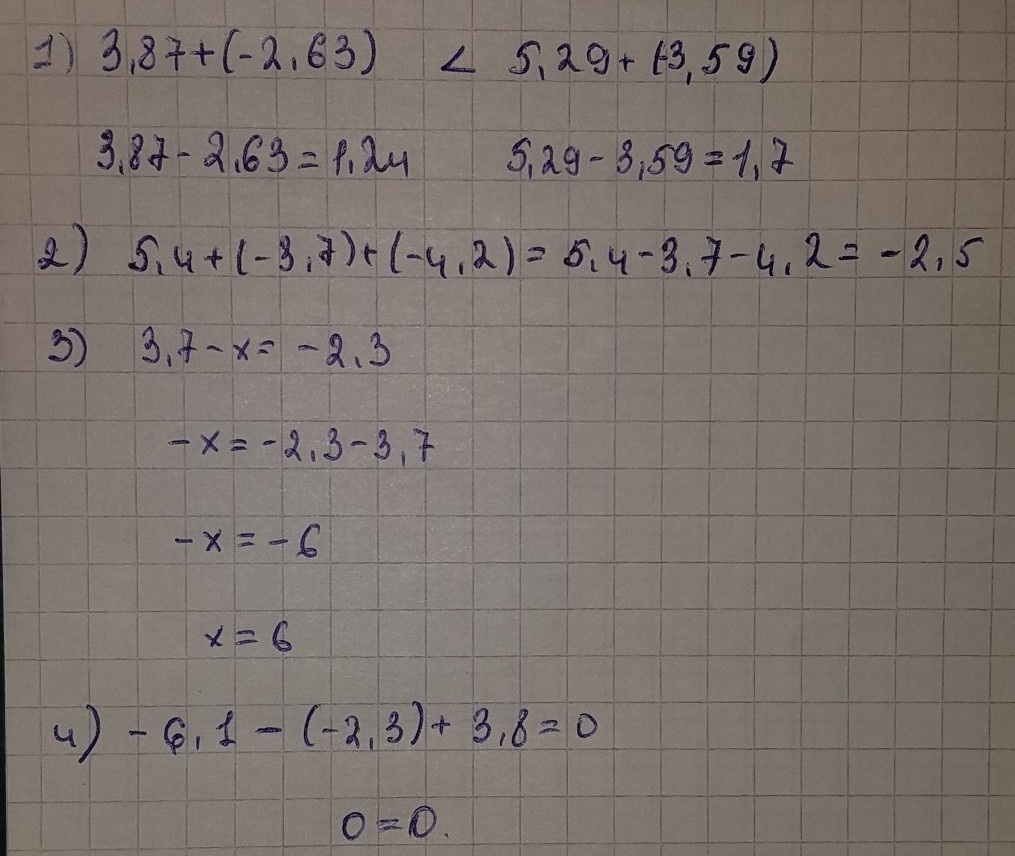 1) 3,87+(-2,63) < 5,29+(-3,59)
3,87-2,63=1,24 5,29-3,59=1,7
2) 5,4+(-3,7)+(-4,2)=5,4-3,7-4,2=-2,5
3) 3,7-x=-2,3
-x=-2,3-3,7
-x=-6
x=6
4) -6,1-(-2,3)+3,8=0
0=0.